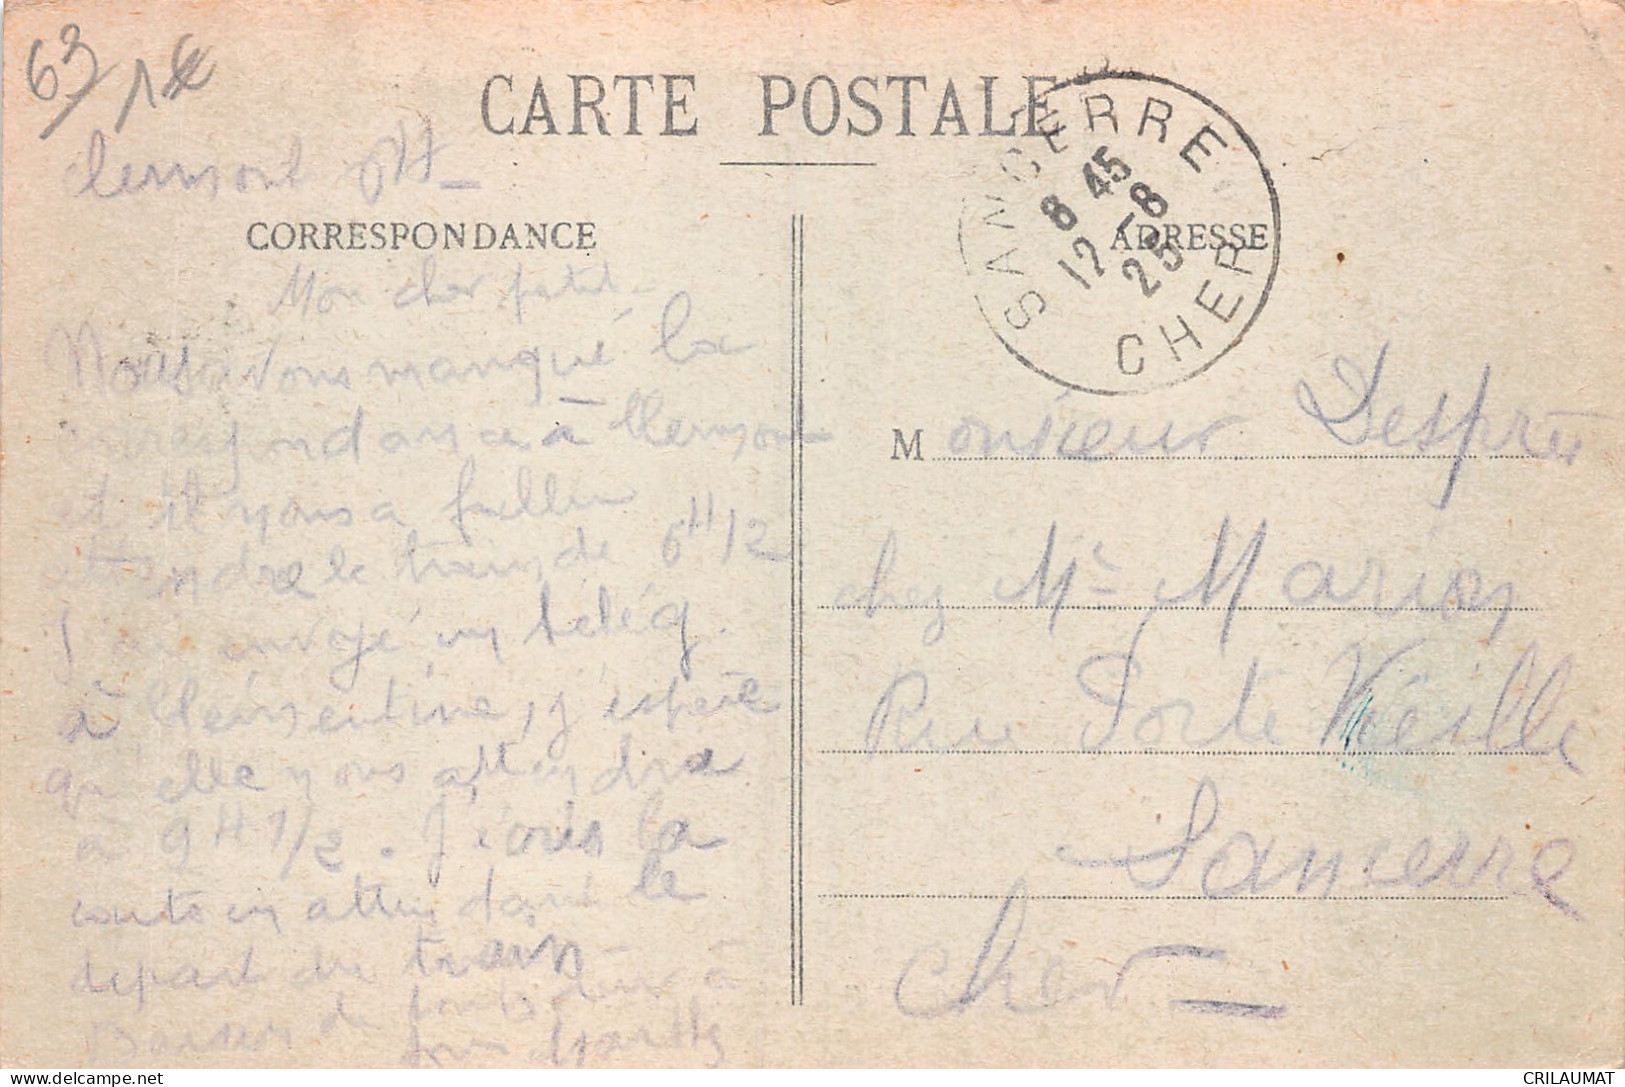 63 1€
CARTE POSTALE
Clermont
CORRESPONDANCE
Mon cher petit
Nous avons manqué la
correspondance à Clermont
et il nous a fallu
attendre le train de 6H 1/2
J'ai envoyé un télég.
à Clémentine, j'espère
qu'elle nous attendra
à 9H 1/2. J'écris la
carte en attendant le
départ du train
Baisers de tous
SANCERRE
8 45
12 -8
25
CHER
ADRESSE
Monsieur Després
chez Mr Marion
Rue Porte Vieille
Sancerre
Cher
CRILAUMAT